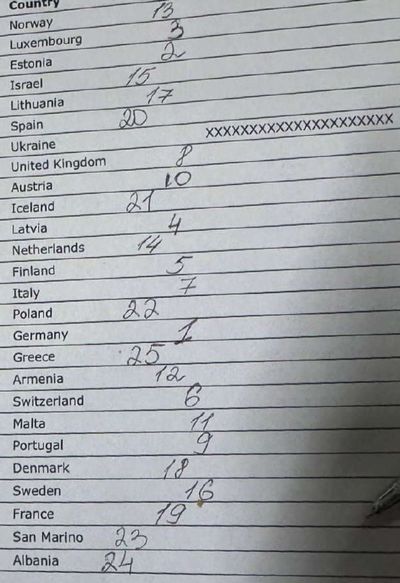 Country
Norway 13
Luxembourg 3
Estonia 2
Israel 15
Lithuania 17
Spain 20
Ukraine XXXXXXXXXXXXXXXXXXXXXX
United Kingdom 8
Austria 10
Iceland 21
Latvia 4
Netherlands 14
Finland 5
Italy 7
Poland 22
Germany 1
Greece 25
Armenia 12
Switzerland 6
Malta 11
Portugal 9
Denmark 18
Sweden 16
France 19
San Marino 23
Albania 24